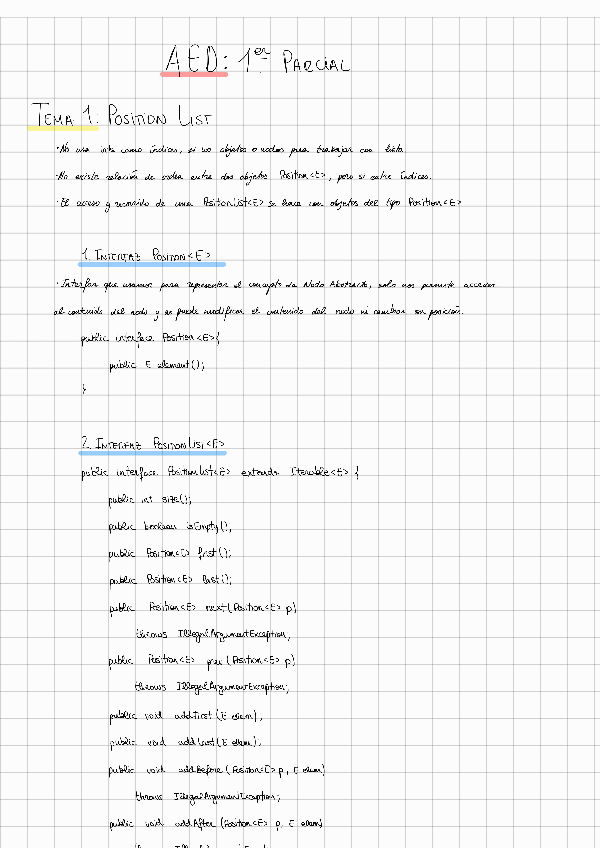 AED: 1er PARCIAL
TEMA 1. POSITION LIST
· No usa ints como índices, si no objetos o nodos para trabajar con lista
· No existe relación de orden entre dos objetos Position<E>, pero si entre índices.
· El acceso y recorrido de una PositonList<E> se hace con objetos del tipo Position<E>
1. INTERFAZ POSITION<E>
· Interfaz que usamos para representar el concepto de Nodo Abstracto, solo nos permite acceder
al contenido del nodo y no puede modificar el contenido del nodo ni cambiar su posición.
public interface Position<E>{
public E element();
}
2. INTERFAZ POSITIONLIST<E>
public interface PositionList<E> extends Iterable<E> {
public int size();
public boolean isEmpty();
public Position<E> first();
public Position<E> last();
public Position<E> next(Position<E> p)
throws IllegalArgumentException;
public Position<E> prev(Position<E> p)
throws IllegalArgumentException;
public void addFirst(E elem);
public void addLast(E elem);
public void addBefore(Position<E> p, E elem)
throws IllegalArgumentException;
public void addAfter(Position<E> p, E elem)